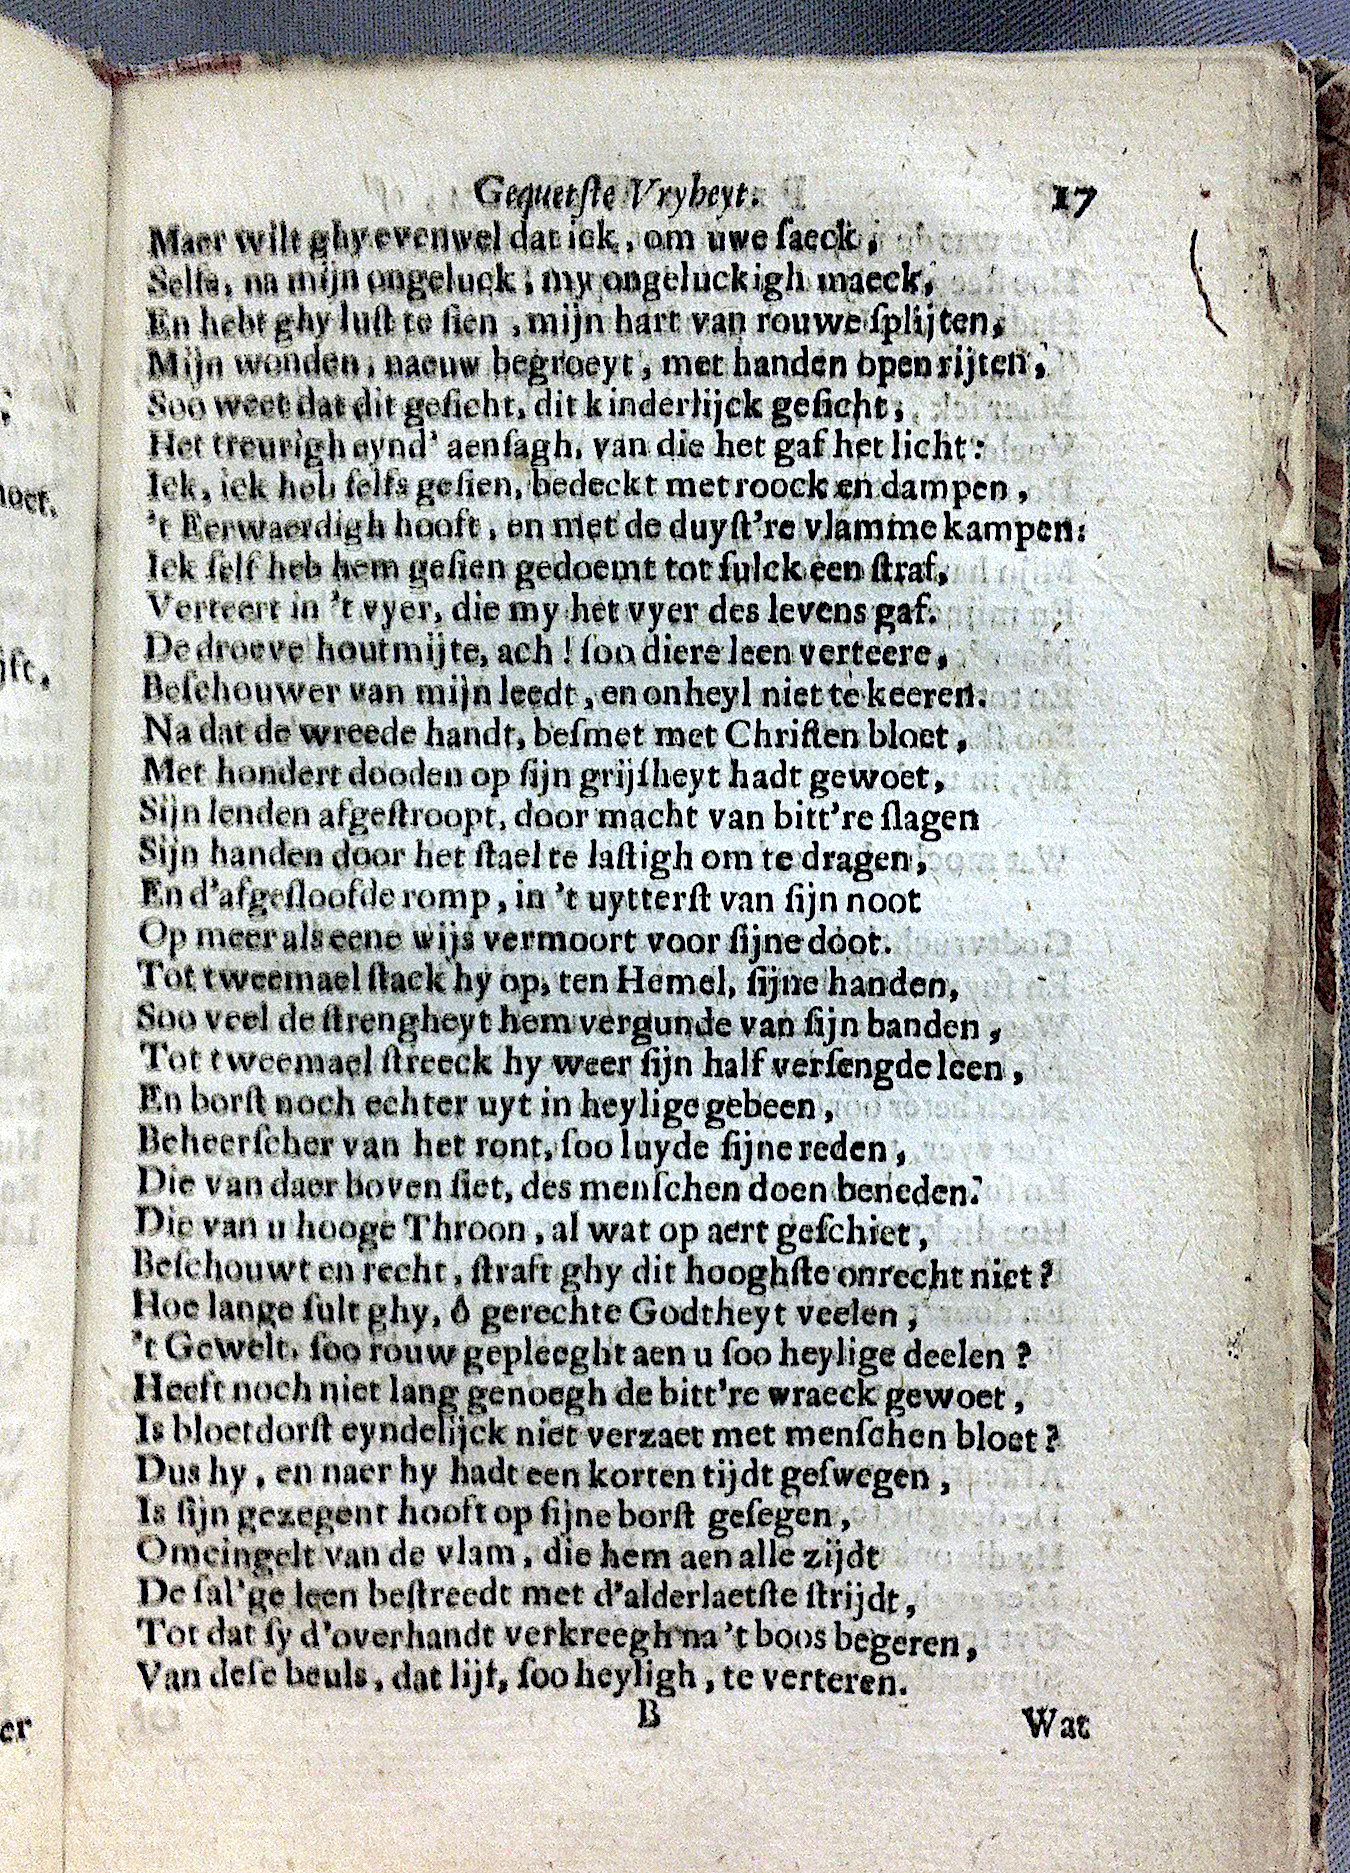 Gequetſte Vryheyt. 17
Maer wilt ghy evenwel dat ick, om uwe ſaeck,
Selfs, na mijn ongeluck, my ongeluckigh maeck,
En hebt ghy luſt te ſien, mijn hart van rouwe ſplijten,
Mijn wonden, naeuw begroeyt, met handen open rijten,
Soo weet dat dit geſicht, dit kinderlijck geſicht,
Het treurigh eynd' aenſagh, van die het gaf het licht:
Ick, ick heb ſelfs geſien, bedeckt met roock en dampen,
't Eerwaerdigh hooft, en met de duyſt're vlamme kampen:
Ick ſelf heb hem geſien gedoemt tot ſulck een ſtraf,
Verteert in 't vyer, die my het vyer des levens gaf.
De droeve houtmijte, ach! ſoo diere leen verteere,
Beſchouwer van mijn leedt, en onheyl niet te keeren.
Na dat de wreede handt, beſmet met Chriſten bloet,
Met hondert dooden op ſijn grijſheyt hadt gewoet,
Sijn lenden afgeſtroopt, door macht van bitt're ſlagen
Sijn handen door het ſtael te laſtigh om te dragen,
En d'afgeſloofde romp, in 't uytterſt van ſijn noot
Op meer als eene wijs vermoort voor ſijne doot.
Tot tweemael ſtack hy op, ten Hemel, ſijne handen,
Soo veel de ſtrengheyt hem vergunde van ſijn banden,
Tot tweemael ſtreeck hy weer ſijn half verſengde leen,
En borſt noch echter uyt in heylige gebeen,
Beheerſcher van het ront, ſoo luyde ſijne reden,
Die van daer boven ſiet, des menſchen doen beneden.
Die van u hooge Throon, al wat op aert geſchiet,
Beſchouwt en recht, ſtraft ghy dit hooghſte onrecht niet?
Hoe lange ſult ghy, ô gerechte Godtheyt veelen,
't Gewelt, ſoo rouw gepleeght aen u ſoo heylige deelen?
Heeft noch niet lang genoegh de bitt're wraeck gewoet,
Is bloetdorſt eyndelijck niet verzaet met menſchen bloet?
Dus hy, en naer hy hadt een korten tijdt geſwegen,
Is ſijn gezegent hooft op ſijne borſt geſegen,
Omcingelt van de vlam, die hem aen alle zijdt
De ſal'ge leen beſtreedt met d'alderlaetſte ſtrijdt,
Tot dat ſy d'overhandt verkreegh na 't boos begeren,
Van deſe beuls, dat lijf, ſoo heyligh, te verteren.
B Wat